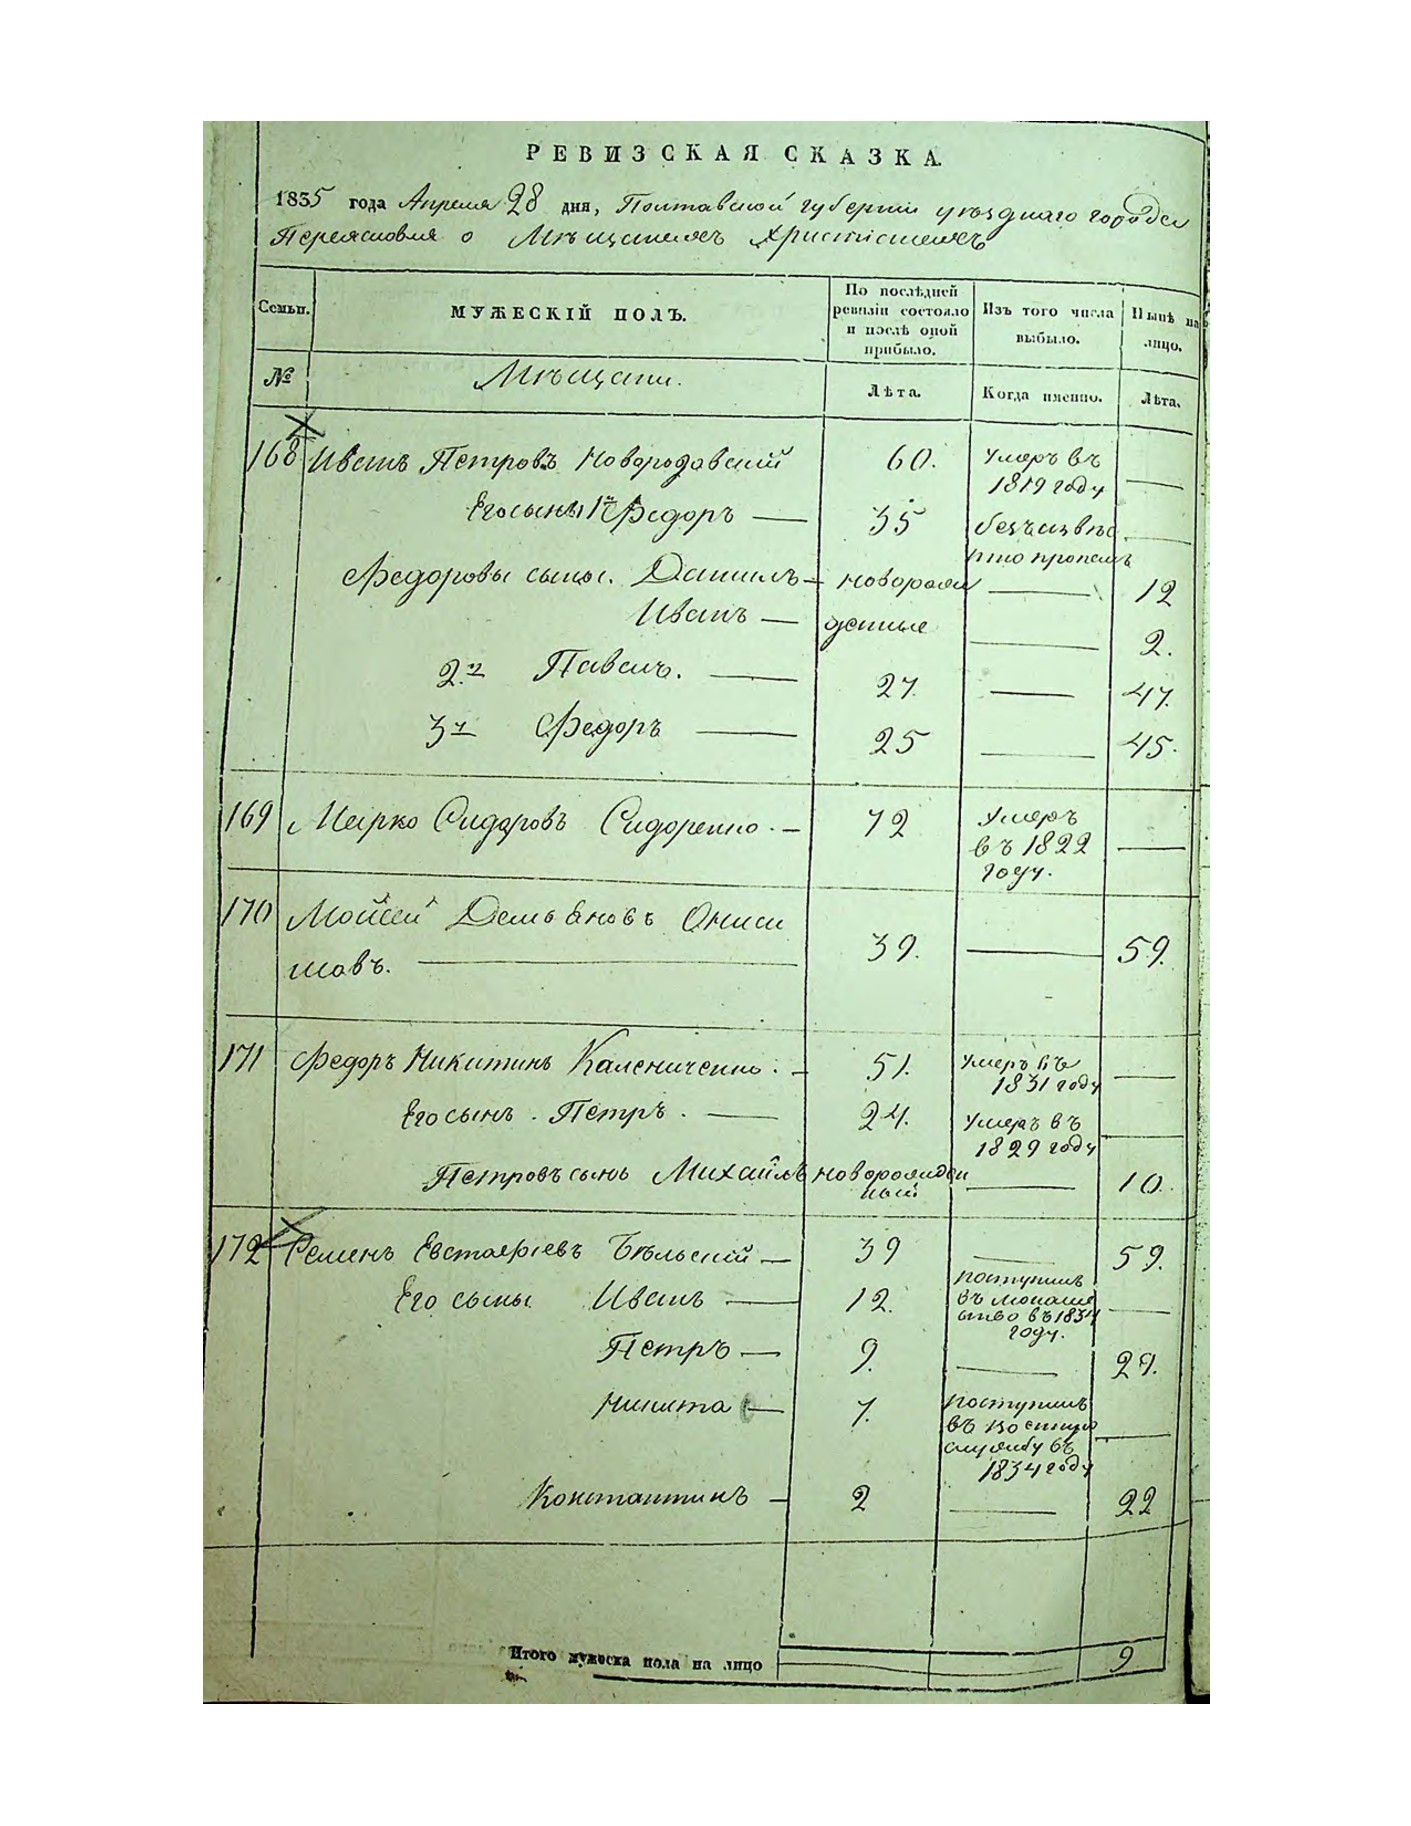 РЕВИЗСКАЯ СКАЗКА.
1835 года Апреля 28 дня, Полтавской губернии уѣзднаго города
Переяславля о Мѣщанахъ Христіянахъ
Семьи. МУЖЕСКІЙ ПОЛЪ. По послѣдней ревизіи состояло и послѣ оной прибыло. Изъ того числа выбыло. Нынѣ на лицо.
№ Мѣщани. Лѣта. Когда именно. Лѣта.
168 Иванъ Петровъ 60. Умеръ въ
1819 году —
Его сыны 1й Федоръ — 35 безъизвѣс
тно пропалъ —
Федоровы сыны. Данилъ — новорож — 12
Иванъ — денные — 2.
2й Павелъ. — 27. — 47.
3й Федоръ — 25 — 45.
169 Марко Сидоровъ Сидоренко. — 72 Умеръ
въ 1822 —
году.
170 Мойсей Демьяновъ Ониси
мовъ. — 39. — 59.
171 Федоръ Никитинъ Калениченко. — 51. Умеръ въ
1831 году —
Его сынъ. Петръ. — 24. Умеръ въ
1829 году —
Петровъ сынъ Михайлъ новорожден
ный — 10.
172 Семенъ Евстафіевъ Бѣльский — 39 — 59.
Его сыны Иванъ — 12. поступилъ
въ монаше
ство въ 1834
году. —
Петръ — 9. — 29.
Никита — 7. поступилъ
въ военную
службу въ
1834 году —
Константинъ — 2 — 22
Итого мужеска пола на лицо 9